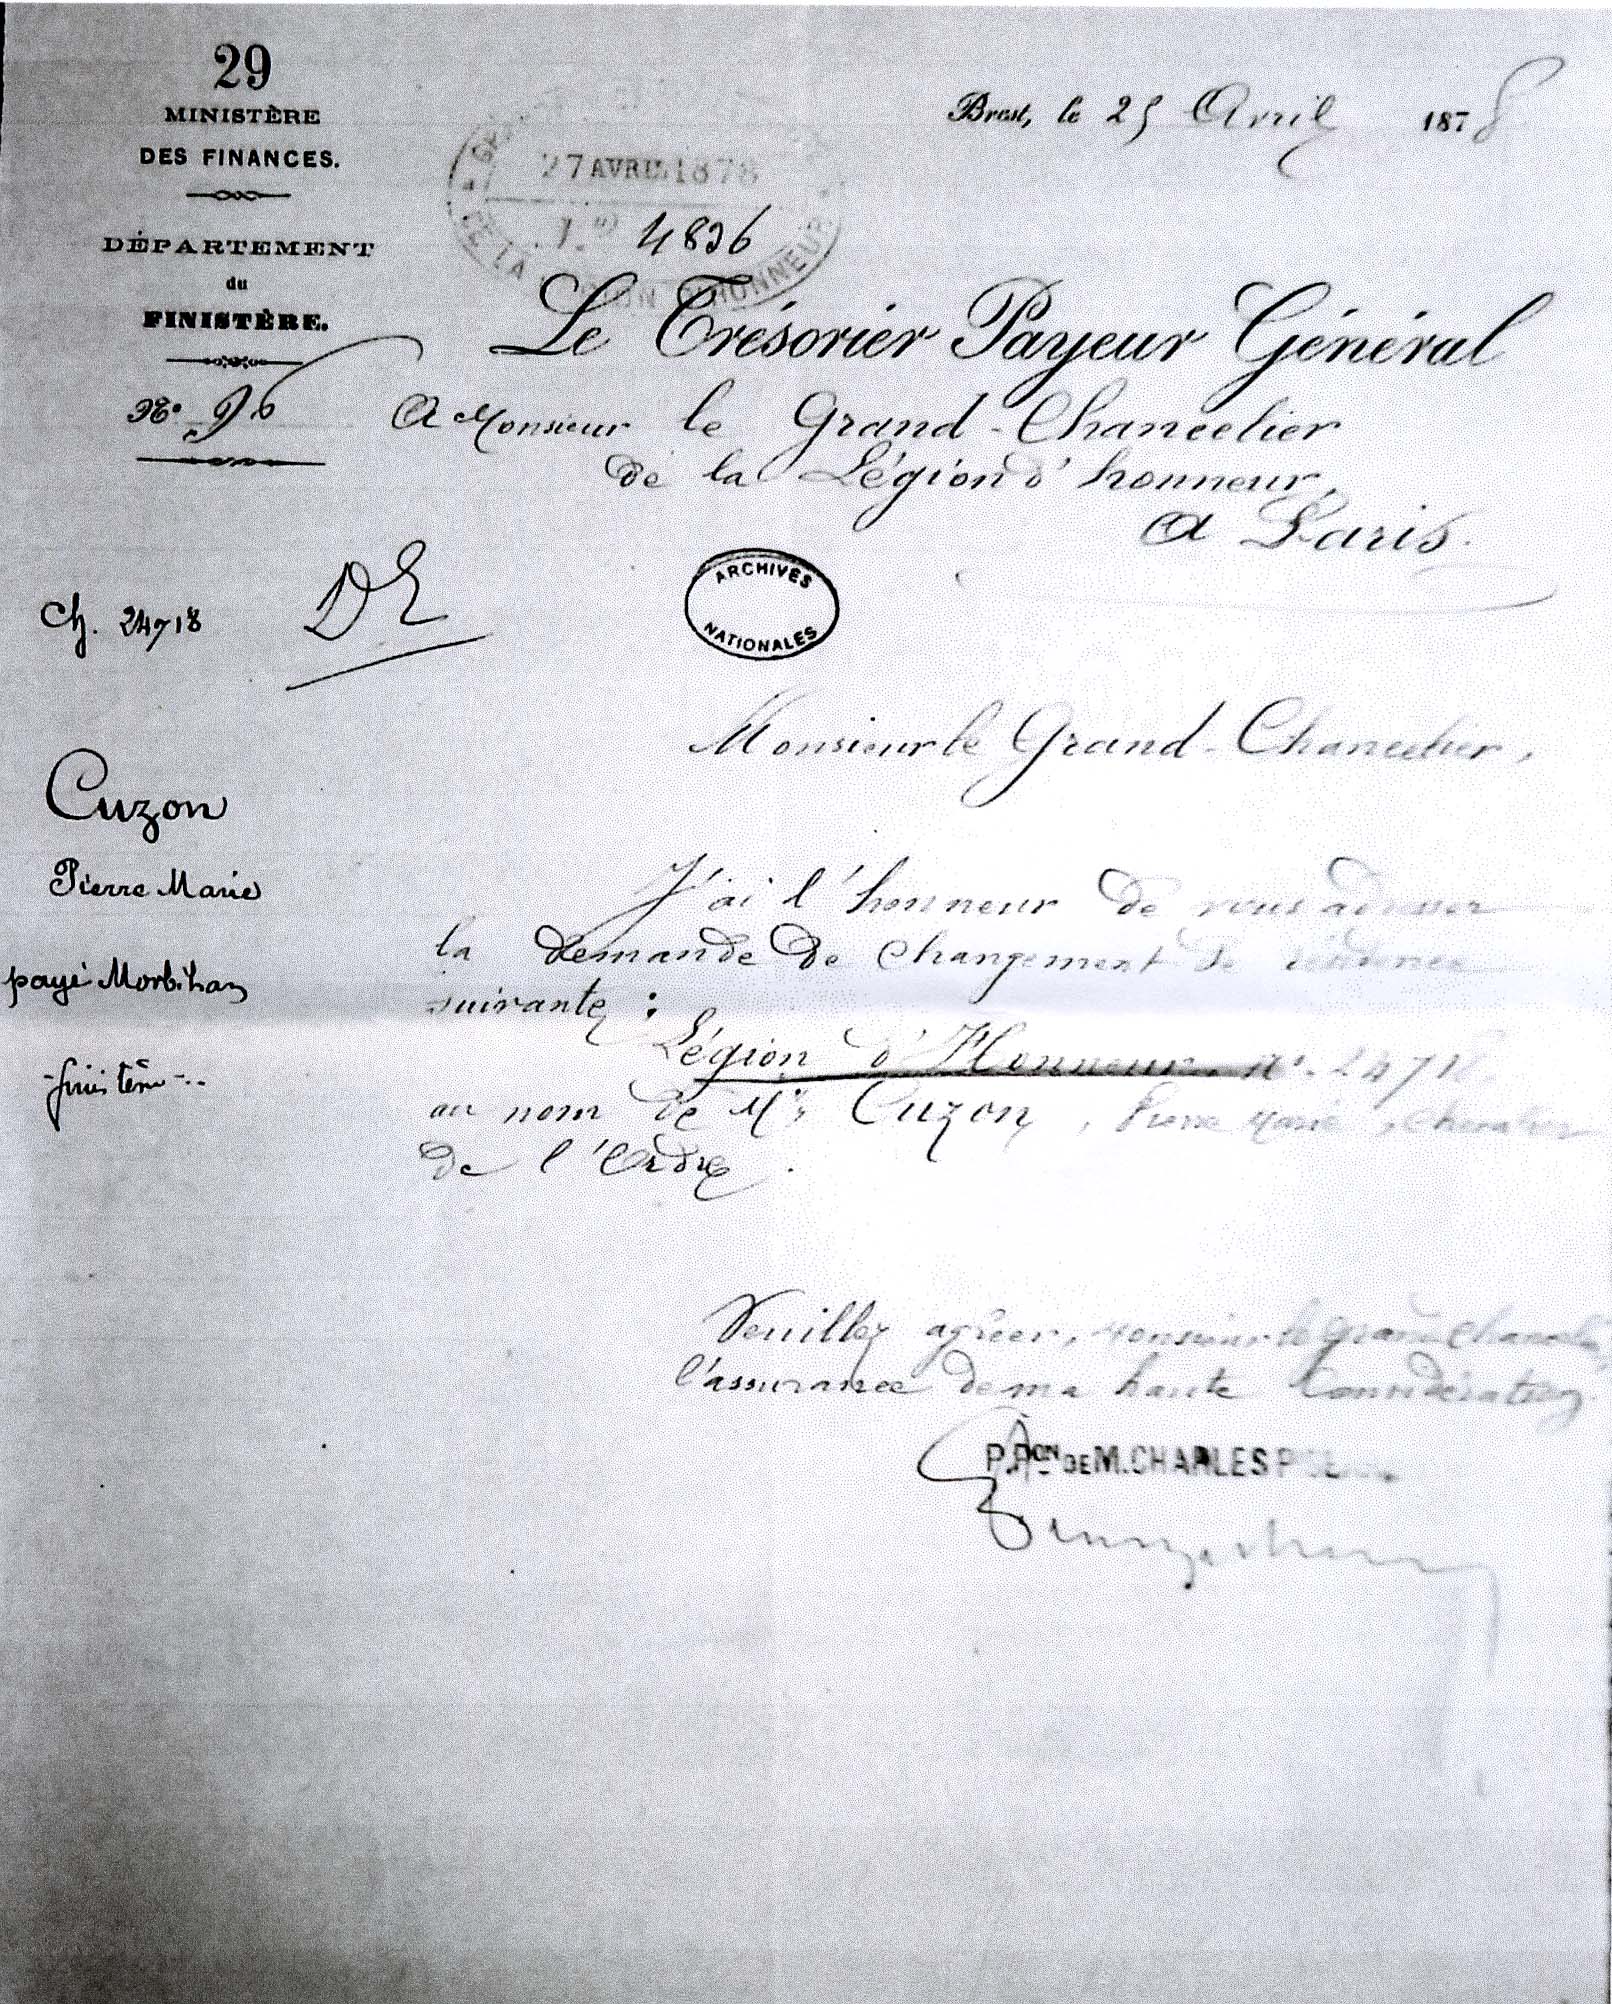 29
MINISTÈRE
DES FINANCES.
DÉPARTEMENT
du
FINISTÈRE.
N° 96
Brest, le 25 Avril 1878
27 AVRIL 1878
4836
DE LA LÉGION D'HONNEUR
Le Trésorier Payeur Général
A Monsieur le Grand-Chancelier
de la Légion d'honneur,
A Paris.
ARCHIVES
NATIONALES
Ch. 24718
DE
Cuzon
Pierre Marie
payé Morbihan
- finistère -..
Monsieur le Grand-Chancelier,
J'ai l'honneur de vous adresser
la demande de changement de résidence
suivante :
Légion d'Honneur. n°. 24718
au nom de Mr Cuzon, Pierre Marie, Chevalier
de l'Ordre.
Veuillez agréer, Monsieur le Grand Chancelier,
l'assurance de ma haute Considération
P. PON DE M. CHARLES